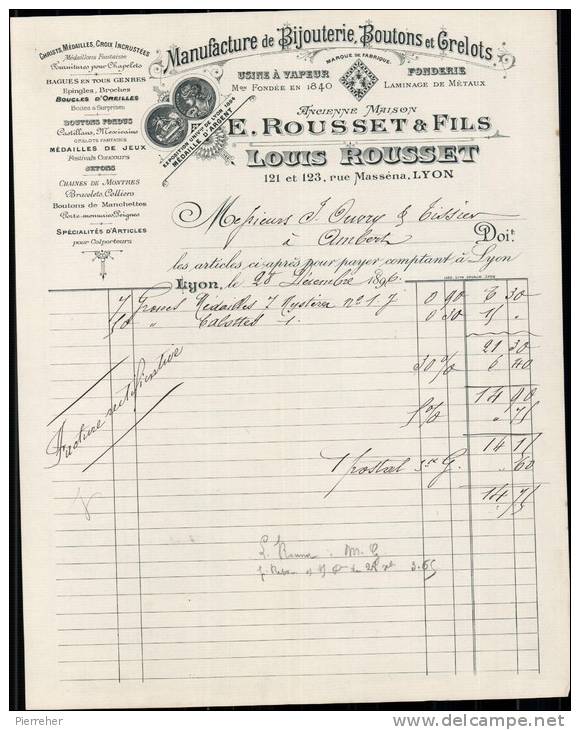 CHRISTS, MÉDAILLES, CROIX INCRUSTÉES
Médaillons Fantaisie
Fournitures pour Chapelets
BAGUES EN TOUS GENRES
Epingles, Broches
BOUCLES D'OREILLES
Boules à Surprises
BOUTONS FONDUS
Castillans, Mexicains
GRELOTS FANTAISIE
MÉDAILLES DE JEUX
Festivals Concours
JETONS
CHAINES DE MONTRES
Bracelets, Colliers
Boutons de Manchettes
Porte-monnaie, Peignes
SPÉCIALITÉS D'ARTICLES
pour Colporteurs
Manufacture de Bijouterie, Boutons et Grelots
MARQUE DE FABRIQUE
USINE À VAPEUR
Mon FONDÉE EN 1840
FONDERIE
LAMINAGE DE MÉTAUX
EXPOSITION UNIVlle DE LYON 1894
MÉDAILLE D'ARGENT
ANCIENNE MAISON
E. ROUSSET & FILS
LOUIS ROUSSET
121 et 123, rue Masséna, LYON
Messieurs J. Ouvry & Tissier
à Ambert
Doit
les articles ci-après pour payer comptant à Lyon
Lyon, le 20 Décembre 1896
7 Grosses Médailles 7 Mystères no 1. J 0 90 6 30
50 " Calottes 1. 0 30 15 "
21 30
30 % 6 40
14 90
5 % " 75
14 15
1 postal en G. " 60
14 75
Facture rectificative
3.65
Pierreher
www.delcampe.net